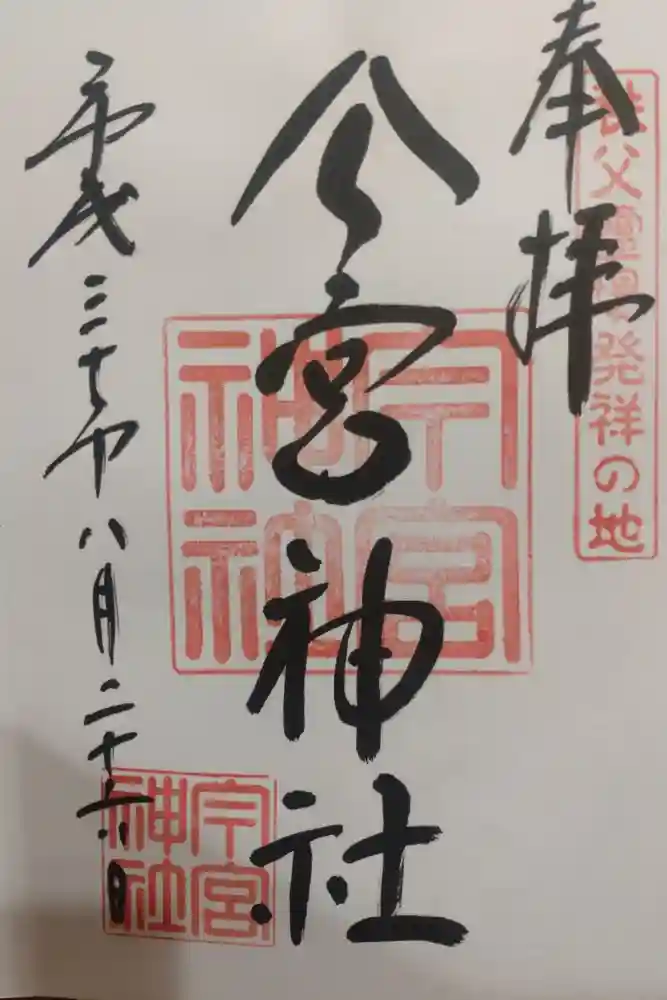 奉拝
秩父霊場発祥の地
今宮神社
平成三十年八月二十六日
今宮
神社